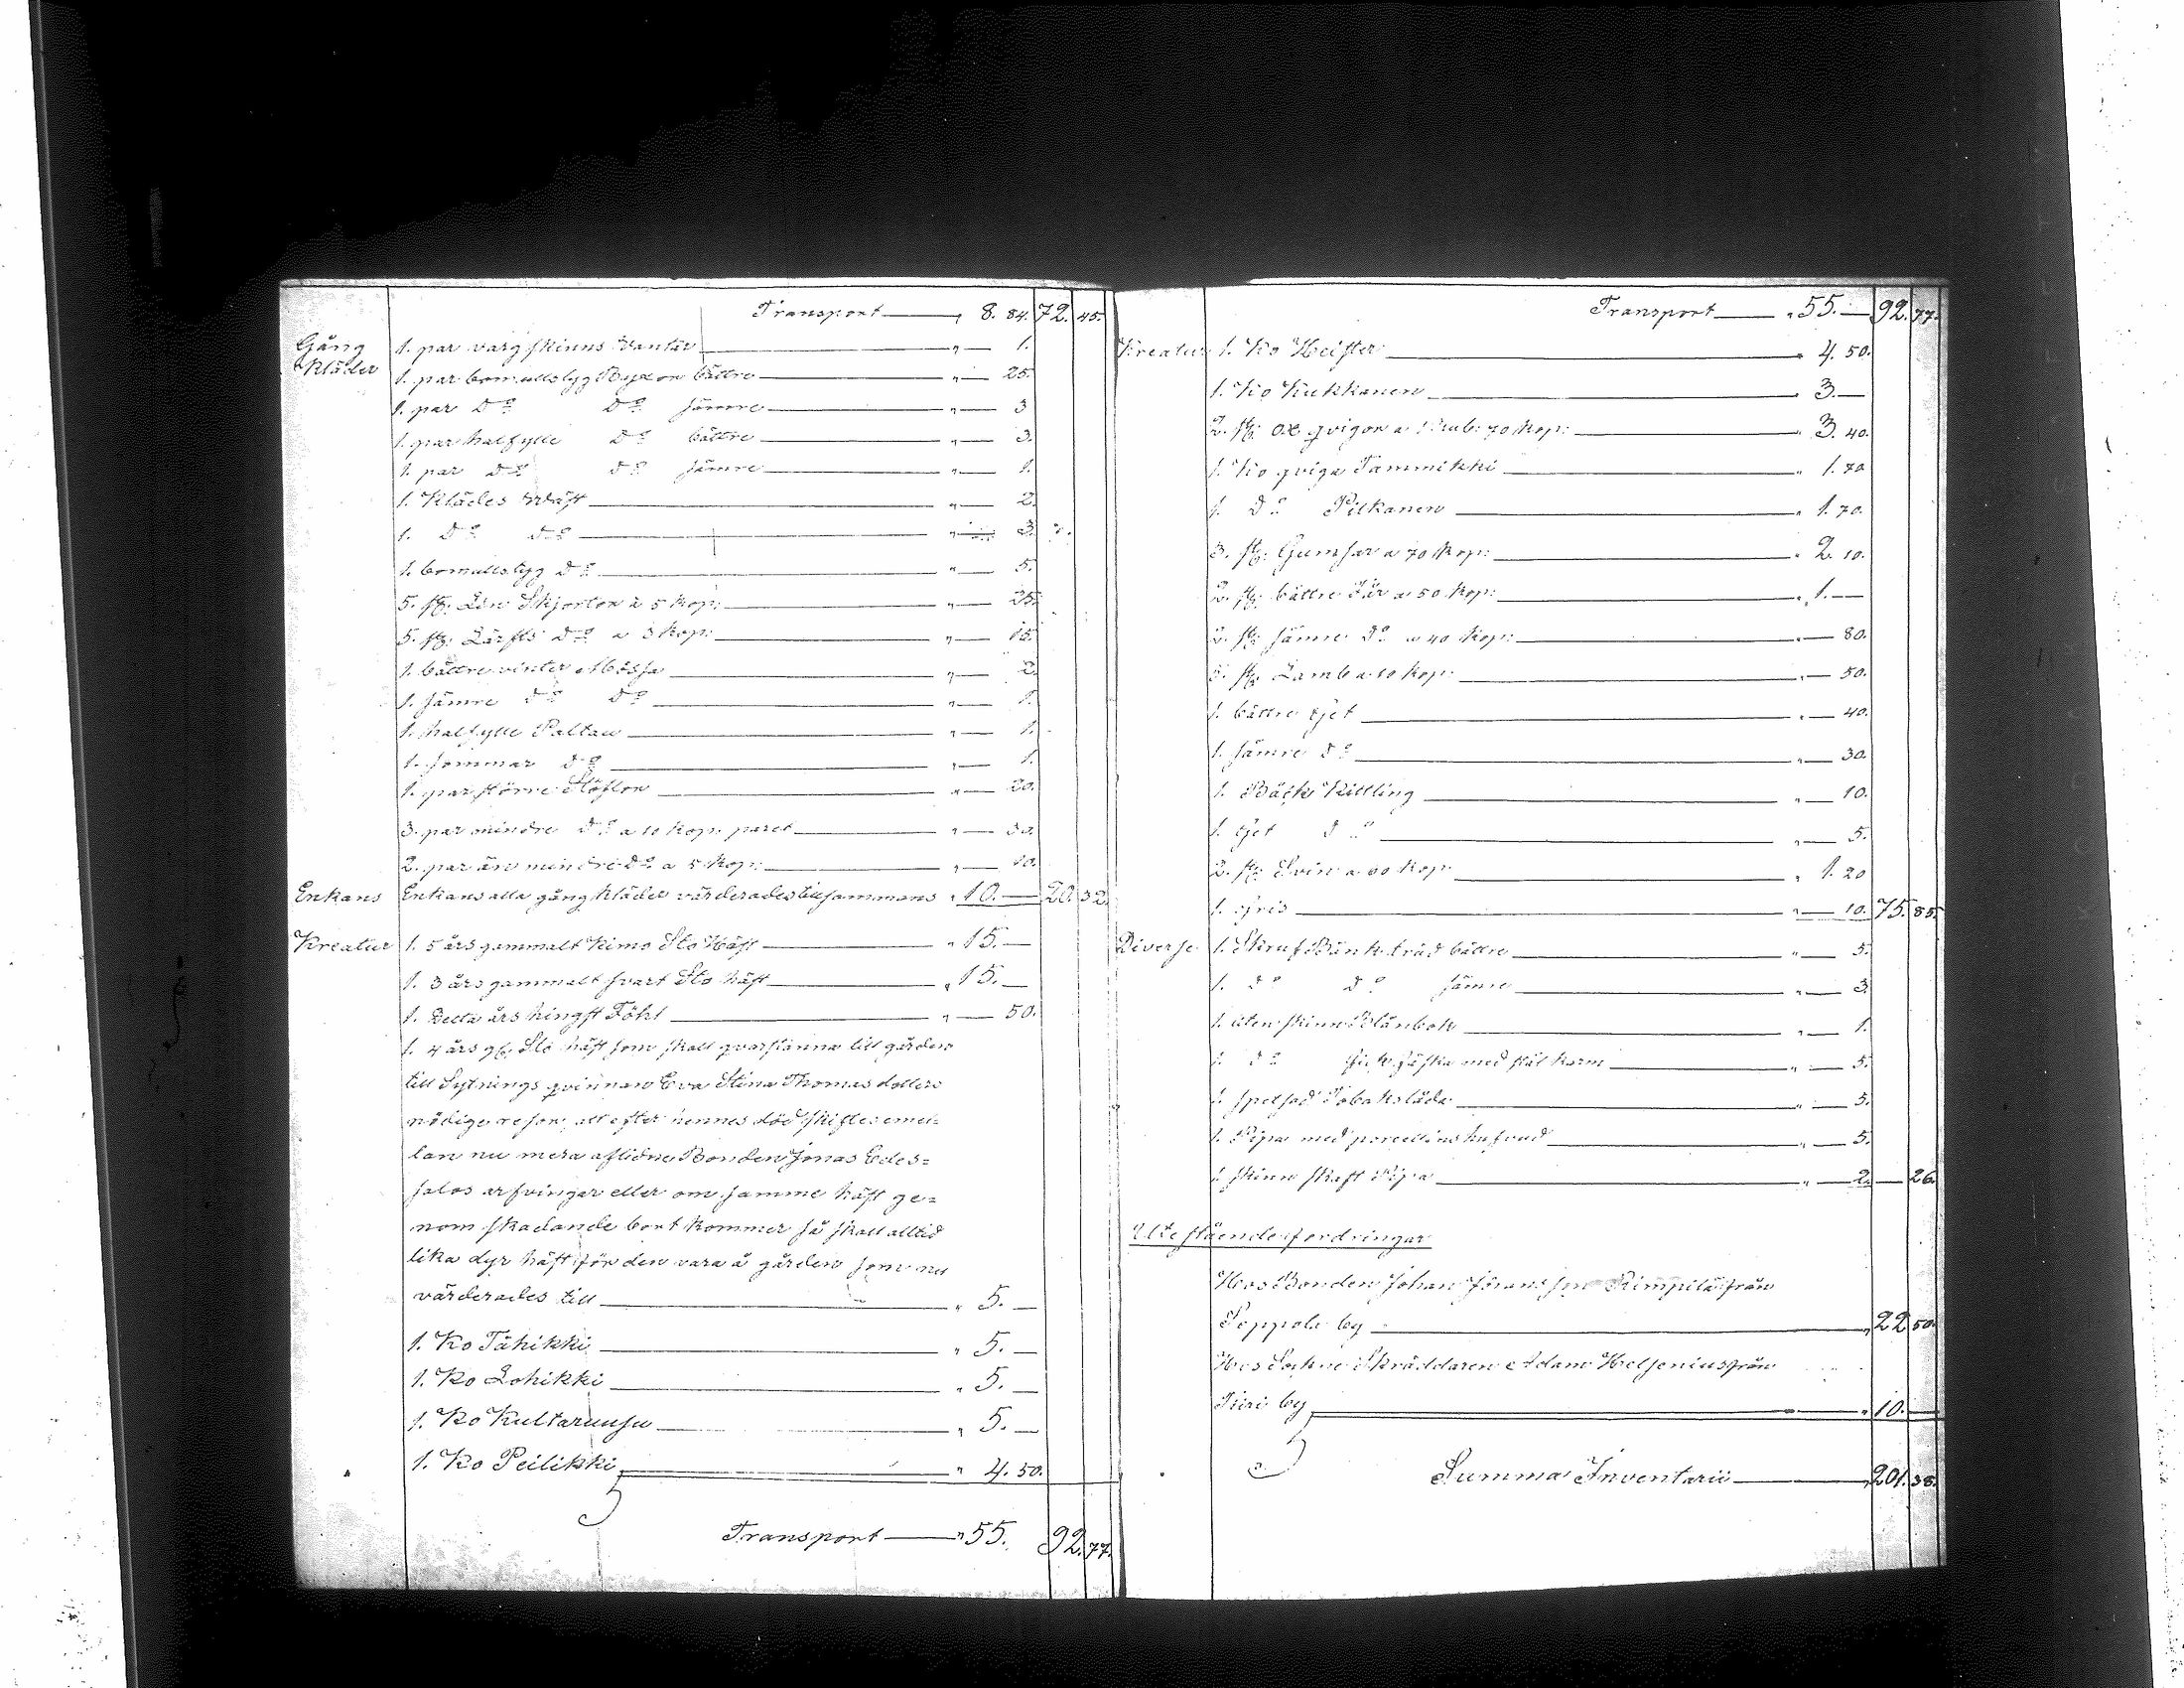 Transport — „ 8. 84. 72. 45.
Gång Kläder 1. par varg skinns Vantar — „ — 1.
1. par bomullstyg Byxor bättre — „ — 25.
1. par Do Do sämre — „ — 3
1. par halfylle Do bättre — „ — 3.
1. par Do Do sämre — „ — 1.
1. Klädes Wäst — „ — 2.
1. Do Do — „ — 3.
1. bomullstyg Do — „ — 5.
5. st: Lin Skjortor à 5 Kop: — „ — 25.
5. st: Lärfts Do a 3 Kop: — „ — 15.
1. bättre vinter Mössa — „ — 2.
1. sämre Do Do — „ — 1.
1. halfylle Paltau — „ — 1.
1. sommar Do — „ — 1.
1. par större Stöflor — „ — 20.
3. par mindre Do a 10 Kop: paret — „ — 30.
2. par än mindre Do a 5 Kop: — „ — 10.
Enkans Enkans alla gång kläder värderades tillsammans „ 10. — 20. 32.
Kreatur 1. 5 års gammalt Kimo Sto Häst — „ 15. —
1. 3 års gammalt svart Sto häst — „ 15. —
1. Detta års hingst Föhl — „ — 50.
1. 4 års gl: Sto häst som skall qvarstanna till gården
till Sytnings qvinnan Eva Stina Thomas dotters
nödiga resor, att efter hennes död skiftes emel=
lan nu mera aflidne Bonden Jonas Edes=
salos arfvingar eller om samma häst ge=
nom skadande bort kommer så skall alltid
lika dyr häst för den vara å gården som nu
värderades till — „ 5. —
1. Ko Tähikki — „ 5. —
1. Ko Lohikki — „ 5. —
1. Ko Kultaruusu — „ 5. —
1. Ko Peilikki — „ 4. 50.
Transport — „ 55. 92. 77.
Transport — „ 55. — 92. 77.
Kreatur 1. Ko Heister — „ 4. 50.
1. Ko Kukkanen — „ 3. —
2. st: ox qvigor a 1 Rub: 70 Kop: — „ 3. 40.
1. Ko qviga Tammikki — „ 1. 70
1. Do Pilkanen — „ 1. 70.
3. st: Gumsar a 70 Kop: — „ 2. 10.
2. st: bättre Får a 50 Kop: — „ 1. —
2. st: sämre Do a 40 Kop: — „ — 80.
5. st: Lamb a 10 Kop: — „ — 50.
1. bättre Get — „ — 40.
1. sämre Do — „ — 30.
1. Båck Killling — „ — 10.
1. Get Do — „ — 5.
2. st: Svin a 60 Kop: — „ 1. 20
1. Gris — „ — 10. 75. 85.
Diverse 1. Skruf Bänk träd bättre — „ — 5.
1. Do Do sämre — „ — 3.
1. liten skinn Plånbok — „ — 1.
1. Do med stål karm — „ — 5.
1. Tobakslåda — „ — 5.
1. Pipa med porcellins hufvud — „ — 5.
1. skinn skaft Pipa — „ — 2. — 26.
Utestående fordringar
Hos Bonden Johan Jöransson Rimpilä från
Peppola by — „ 22. 50.
Hos Sockne Skräddaren Adam Helsenius från
by — „ 10. —
Summa Inventarii — 201. 38.